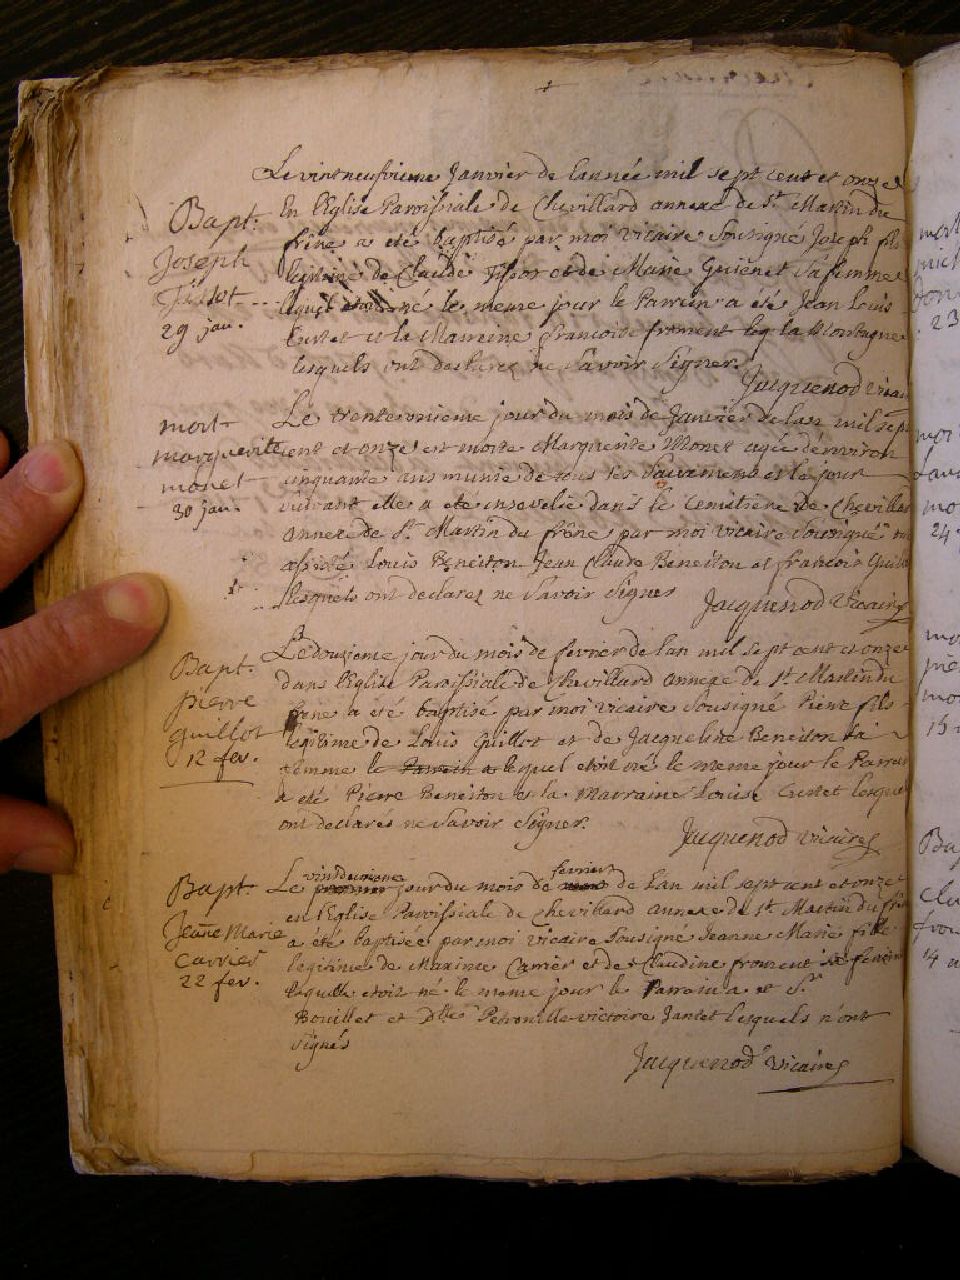 Le vintneufvieme Janvier de lannée mil sept cent et onze
Bapt. En lEglise Paroissiale de Chevillard annexe de St. Martin du
frêne a eté baptisé par moi vicaire Sousigné Joseph fils
Joseph legitime de Claude et de Marie Guienet Sa femme
né le meme jour le Parrin a été Jean Louis
29 jan. Cuttet et la Marrine Francoise froment la Montagne
lesquels ont declarez ne Savoir Signer.
Jacquenod vicai
mort Le trente unieme jour du mois de Janvier de lan mil sept
marguerite cent et onze est morte Marguerite Monet agée d'environ
monet cinquante ans munie de tous les Sacremens et le jour
30 jan. suivant elle a eté ensevelie dans le Cemitiere de Chevillar
annexe de St. Martin du frêne par moi vicaire Sousigné
assisté Louis Beneiton Jean Claude Beneiton et francois Guill
lesquels ont declarez ne Savoir Signer
Jacquenod Vicaire
Le douzieme jour du mois de fevrier de lan mil sept cent et onze
Bapt. dans lEglise Paroissiale de Chevillard annexe de St. Martin du
pierre frêne a eté baptisé par moi vicaire Sousigné Pierre fils
guillot legitime de Louis Guillot et de Jacqueline Beneiton sa
12 fev. femme le Parrein a lequel etoit né le meme jour le Parrai
a eté Pierre Beneiton et la Marraine Louise Cuttet lesque
ont declares ne Savoir Signer.
Jacquenod vicaire
vintdeuxieme fevrier
Bapt. Le premier jour du mois de mars de lan mil sept cent et onze
en lEglise Paroissiale de Chevillard annexe de St. Martin du frê
Jeanne Marie a été baptisée par moi Vicaire Sousigné Jeanne Marie fille
Carrier legitime de Maxime Carrier et de Claudine froment
22 fev. lesquelle etoit né le meme jour le Parrain a et Sr
Bouillet et Dlle Petronille victoire Jantet lesquels n'ont
signés
Jacquenod vicaire